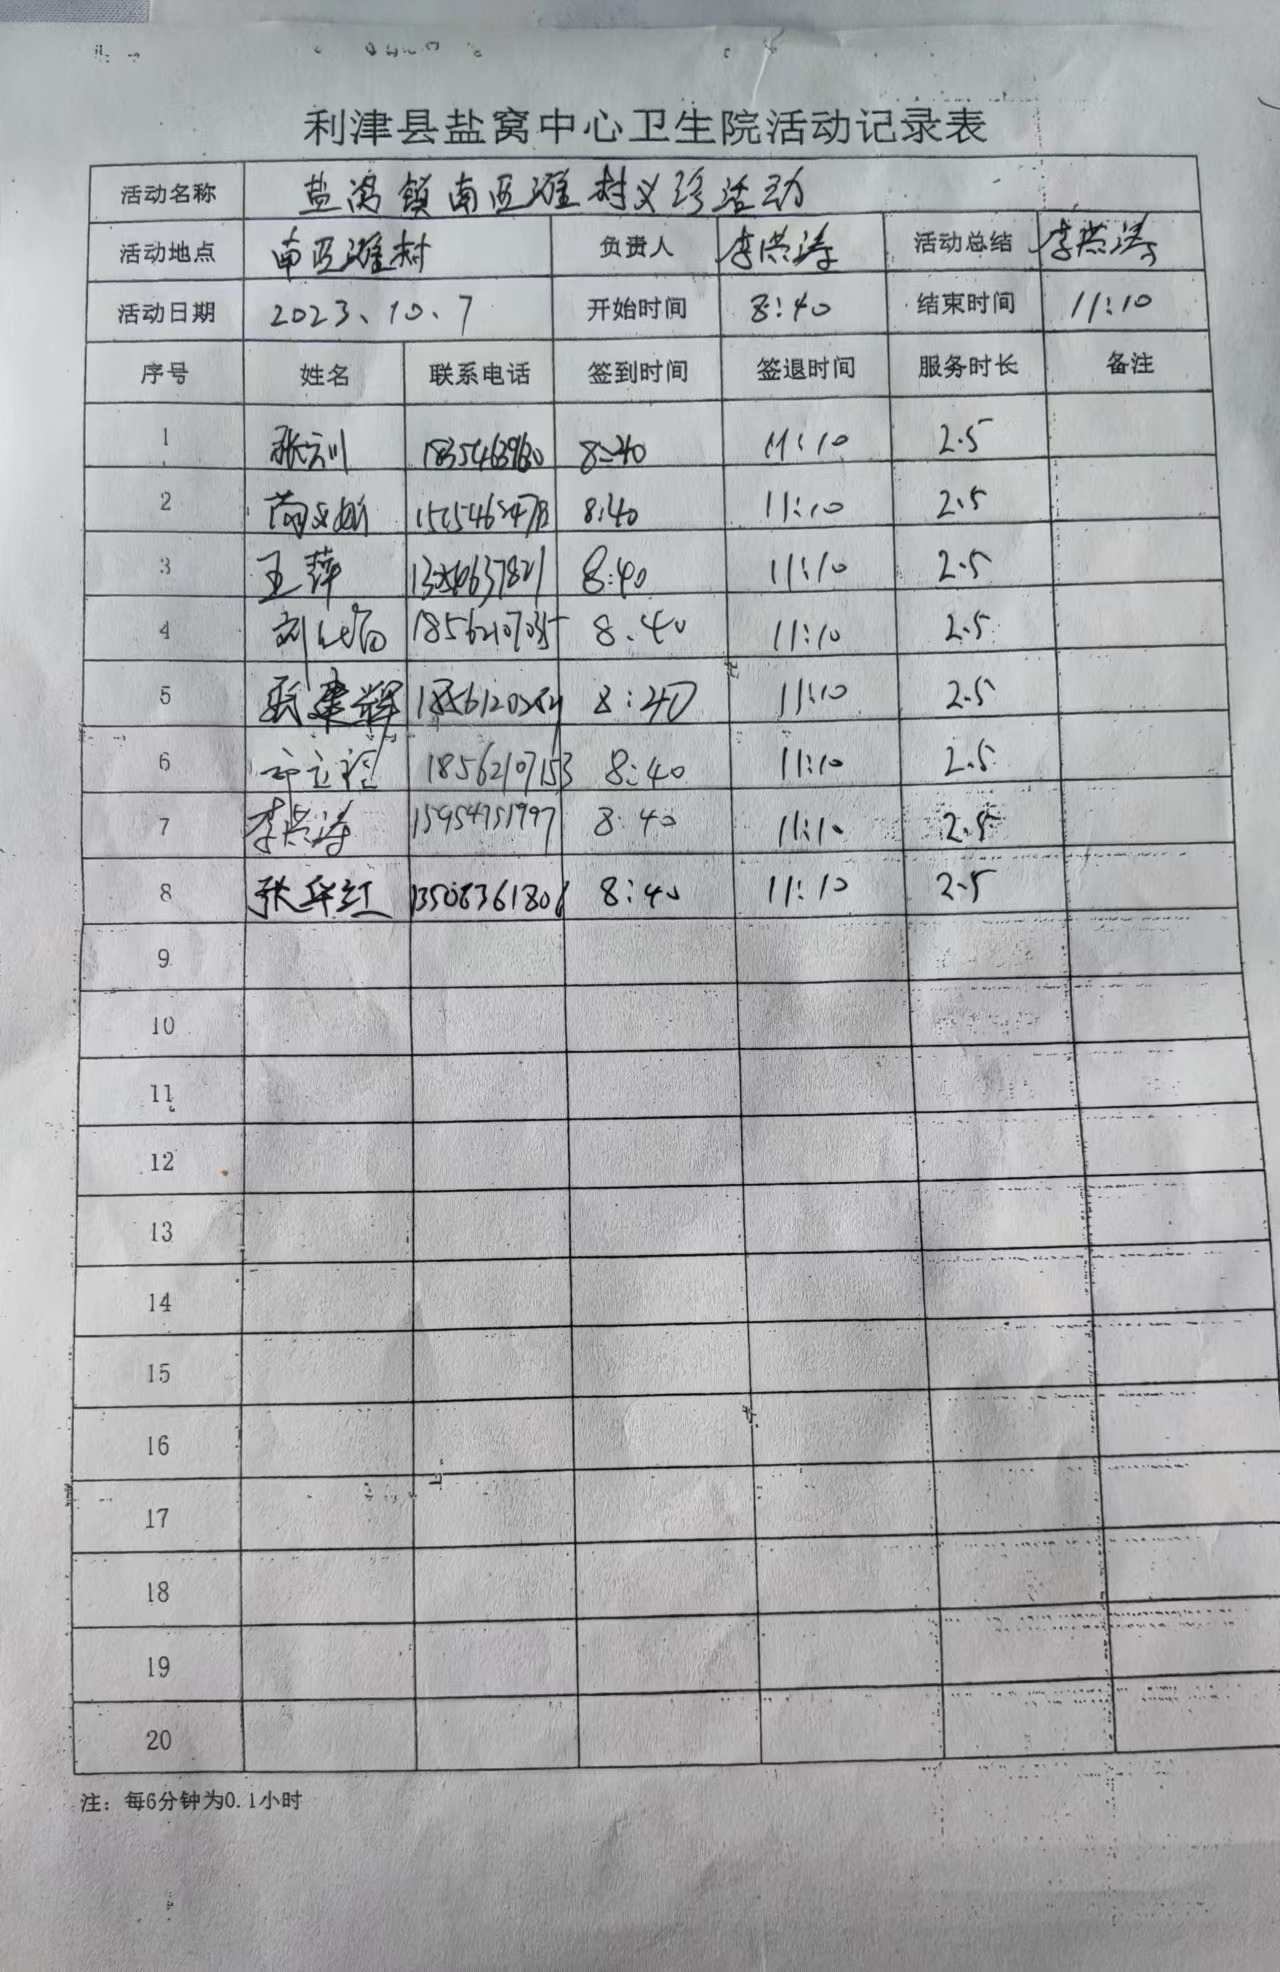 利津县盐窝中心卫生院活动记录表
活动名称 盐窝镇南亚滩村义诊活动
活动地点 南亚滩村 负责人 李洪涛 活动总结 李洪涛
活动日期 2023、10、7 开始时间 8:40 结束时间 11:10
序号 姓名 联系电话 签到时间 签退时间 服务时长 备注
1 8:40 11:10 2.5
2 8:40 11:10 2.5
3 王萍 8:40 11:10 2.5
4 8:40 11:10 2.5
5 8:40 11:10 2.5
6 18562107153 8:40 11:10 2.5
7 李洪涛 8:40 11:10 2.5
8 张华红 13508361806 8:40 11:10 2.5
9
10
11
12
13
14
15
16
17
18
19
20
注：每6分钟为0.1小时